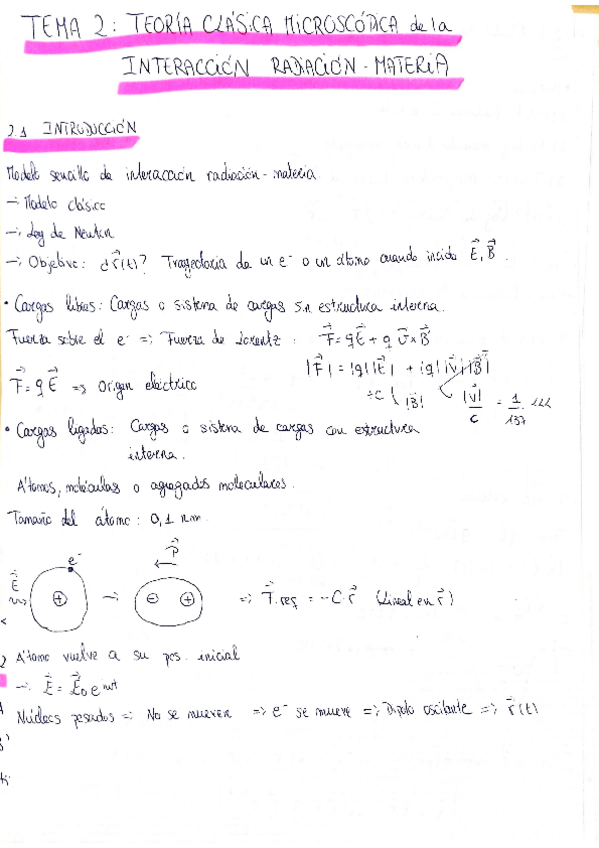 TEMA 2: TEORÍA CLÁSICA MICROSCÓPICA de la
INTERACCIÓN RADIACIÓN-MATERIA
2.1 INTRODUCCIÓN
Modelo sencillo de interacción radiación-materia
→ Modelo clásico
→ Ley de Newton
→ Objetivo: ¿r⃗(t)? Trayectoria de un e⁻ o un átomo cuando incide E⃗, B⃗.
• Cargas libres: Cargas o sistema de cargas sin estructura interna.
Fuerza sobre el e⁻ => Fuerza de Lorentz: F⃗ = qE⃗ + q v⃗ x B⃗
|F⃗| = |q||E⃗| + |q||v⃗||B⃗|
F⃗ = q E⃗ => Origen eléctrico
÷c |B⃗| |v⃗|/c = 1/137 <<<
• Cargas ligadas: Cargas o sistema de cargas con estructura
interna.
Átomos, moléculas o agregados moleculares.
Tamaño del átomo: 0,1 nm.
E⃗ e⁻ + → - + P⃗ => F⃗reg = -C·r⃗ (Lineal en r⃗)
Átomo vuelve a su pos. inicial
→ E⃗ = E⃗₀ e
Núcleos pesados => No se mueven => e⁻ se mueve => Dipolo oscilante => r⃗(t)